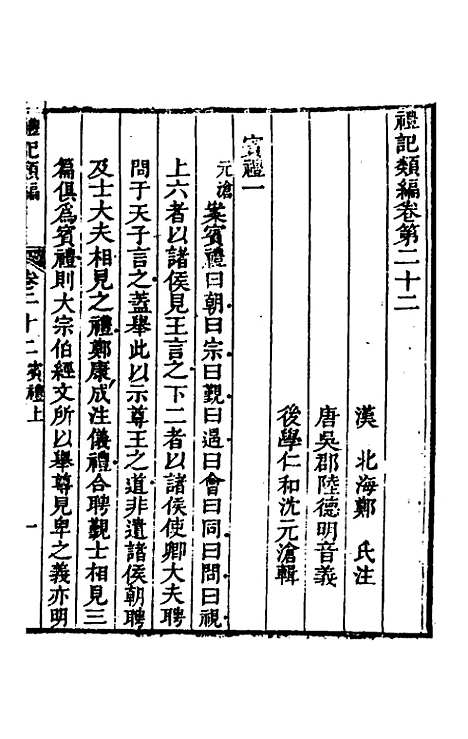 禮記類編卷第二十二
漢 北海鄭 氏注
唐吳郡陸德明音義
後學仁和沈元滄輯
賓禮一
元滄案賓禮曰朝曰宗曰覲曰遇曰會曰同曰問曰視
上六者以諸侯見王言之下二者以諸侯使卿大夫聘
問于天子言之蓋舉此以示尊王之道非遺諸侯朝聘
及士大夫相見之禮鄭康成注儀禮合聘覲士相見三
篇俱為賓禮則大宗伯經文所以舉尊見卑之義亦明
禮記類編 卷二十二 賓禮上 一